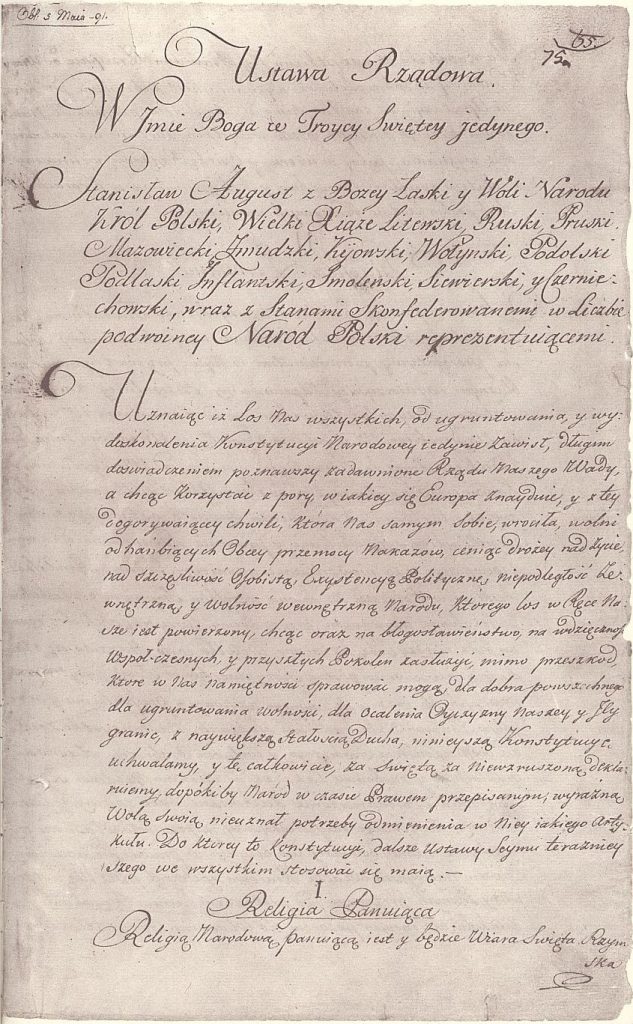 Obl. 5 Maia -91.
65.
75a
Ustawa Rządowa.
W Jmie Boga w Troycy Swiętey jedynego.
Stanisław August z Bożey Łaski y Woli Narodu
Król Polski, Wielki Xiąże Litewski, Ruski, Pruski,
Mazowiecki, Żmudzki, Kijowski, Wołynski, Podolski
Podlaski Jnflantski, Smolenski, Siewierski, y Czernie-
chowski, wraz z Stanami Skonfederowanemi w Liczbie
podwoiney Narod Polski reprezentuiącemi.
Uznaiąc iż Los Nas wszystkich, od ugruntowania, y wy-
doskonalenia Konstytucyi Narodowey iedynie Zawisł, długim
doświadczeniem poznawszy zadawnione Rządu Naszego Wady,
a chcąc korzystać z pory, w iakiey się Europa znayduie, y z tey
dogorywaiącey chwili, która Nas samym sobie, wrociła, wolni
od hańbiących Obcey przemocy Nakazów, ceniąc drożey nad Życie,
nad szczęśliwość Osobistą, Exystencyą Polityczną, niepodległość Ze-
wnętrzną, y wolność wewnętrzną Narodu, którego los w Ręce Na-
sze iest powierzony, chcąc oraz na błogosławieństwo, na wdzięcznoś
Wspoł-czesnych, y przyszłych Pokolen zasłużyć, mimo przeszkod,
ktore w Nas Namiętności sprawować mogą, dla dobra powszechnego
dla ugruntowania wolności, dla Ocalenia Oyczyzny Naszey y Jey
granic, z naywiększą Stałością Ducha, ninieyszą Konstytucyę
uchwalamy, y tę całkowicie, za świętą za Niewzruszoną dekla-
ruiemy, dopókiby Narod w czasie Prawem przepisanym, wyraźną
Wolą Swoią nieuznał potrzeby odmienienia w Niey iakiego Arty-
kułu. Do ktorey to Konstytucyi, dalsze Ustawy Seymu terazniey-
szego we wszystkim stosować się maią. —
I.
Religia Panuiąca
Religią Narodową panuiącą iest y będzie Wiara Swięta Rzym
ska